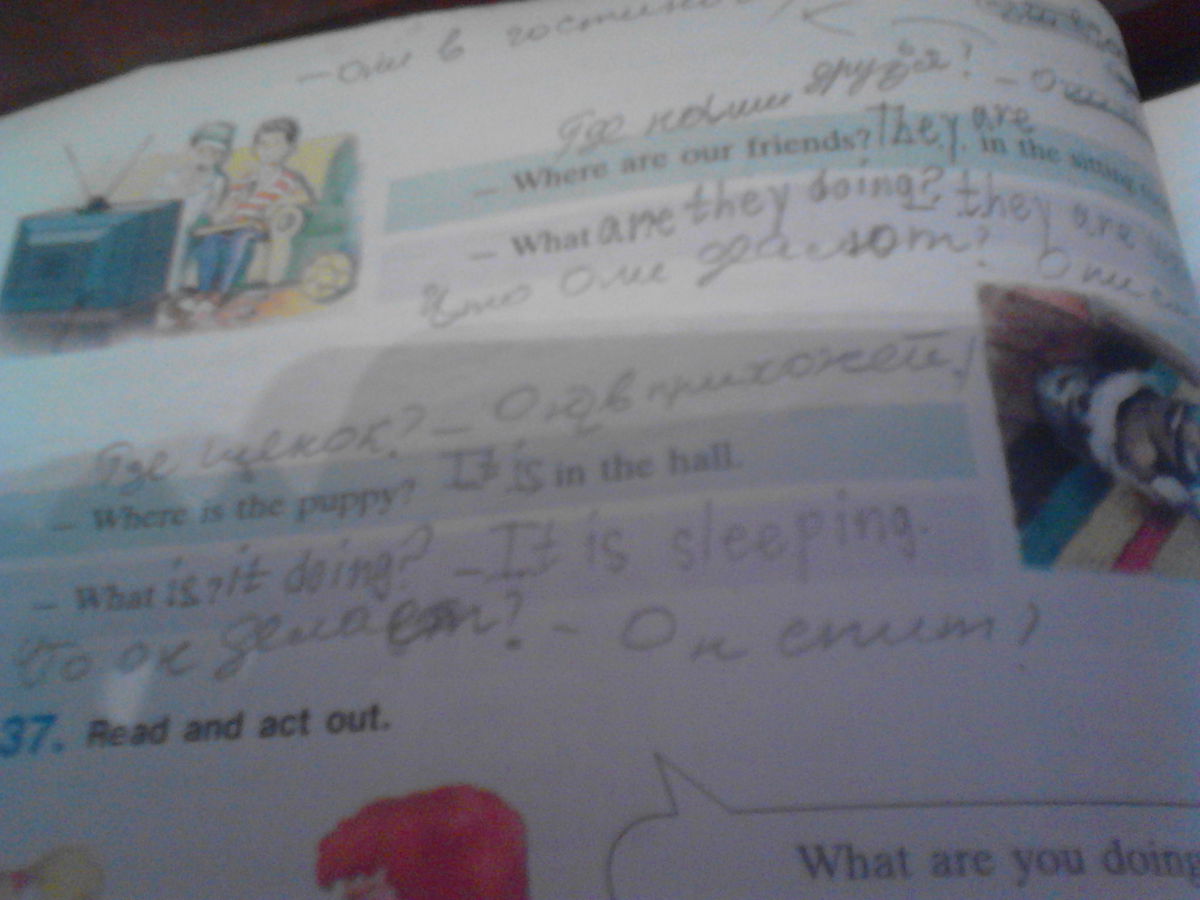 – Они в
Где наши друзья? –
– Where are our friends? They are in the sitting
– What are they doing? they are
Что они делают? Они
Где щенок? – Он в прихожей!
– Where is the puppy? It is in the hall.
– What is it doing? – It is sleeping.
Что он делает? – Он спит!
37. Read and act out.
What are you doing